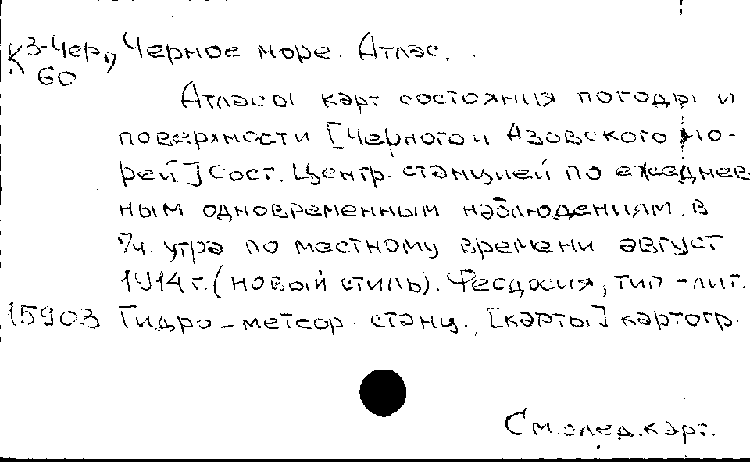 К З-Чер, Черное море. Атлас.
60
Атласы карт состояния погоды и
поверхности [Черного и Азовского мо-
рей] Сост. Центр. станцией по ежеднев
ным одновременным наблюдениям. в
7ч. утра по местному времени август
1914 г. (новый стиль). Феодосия, тип-лит.
15903 Гидро-метеор. станц., [карты] картогр.
См. след. карт.